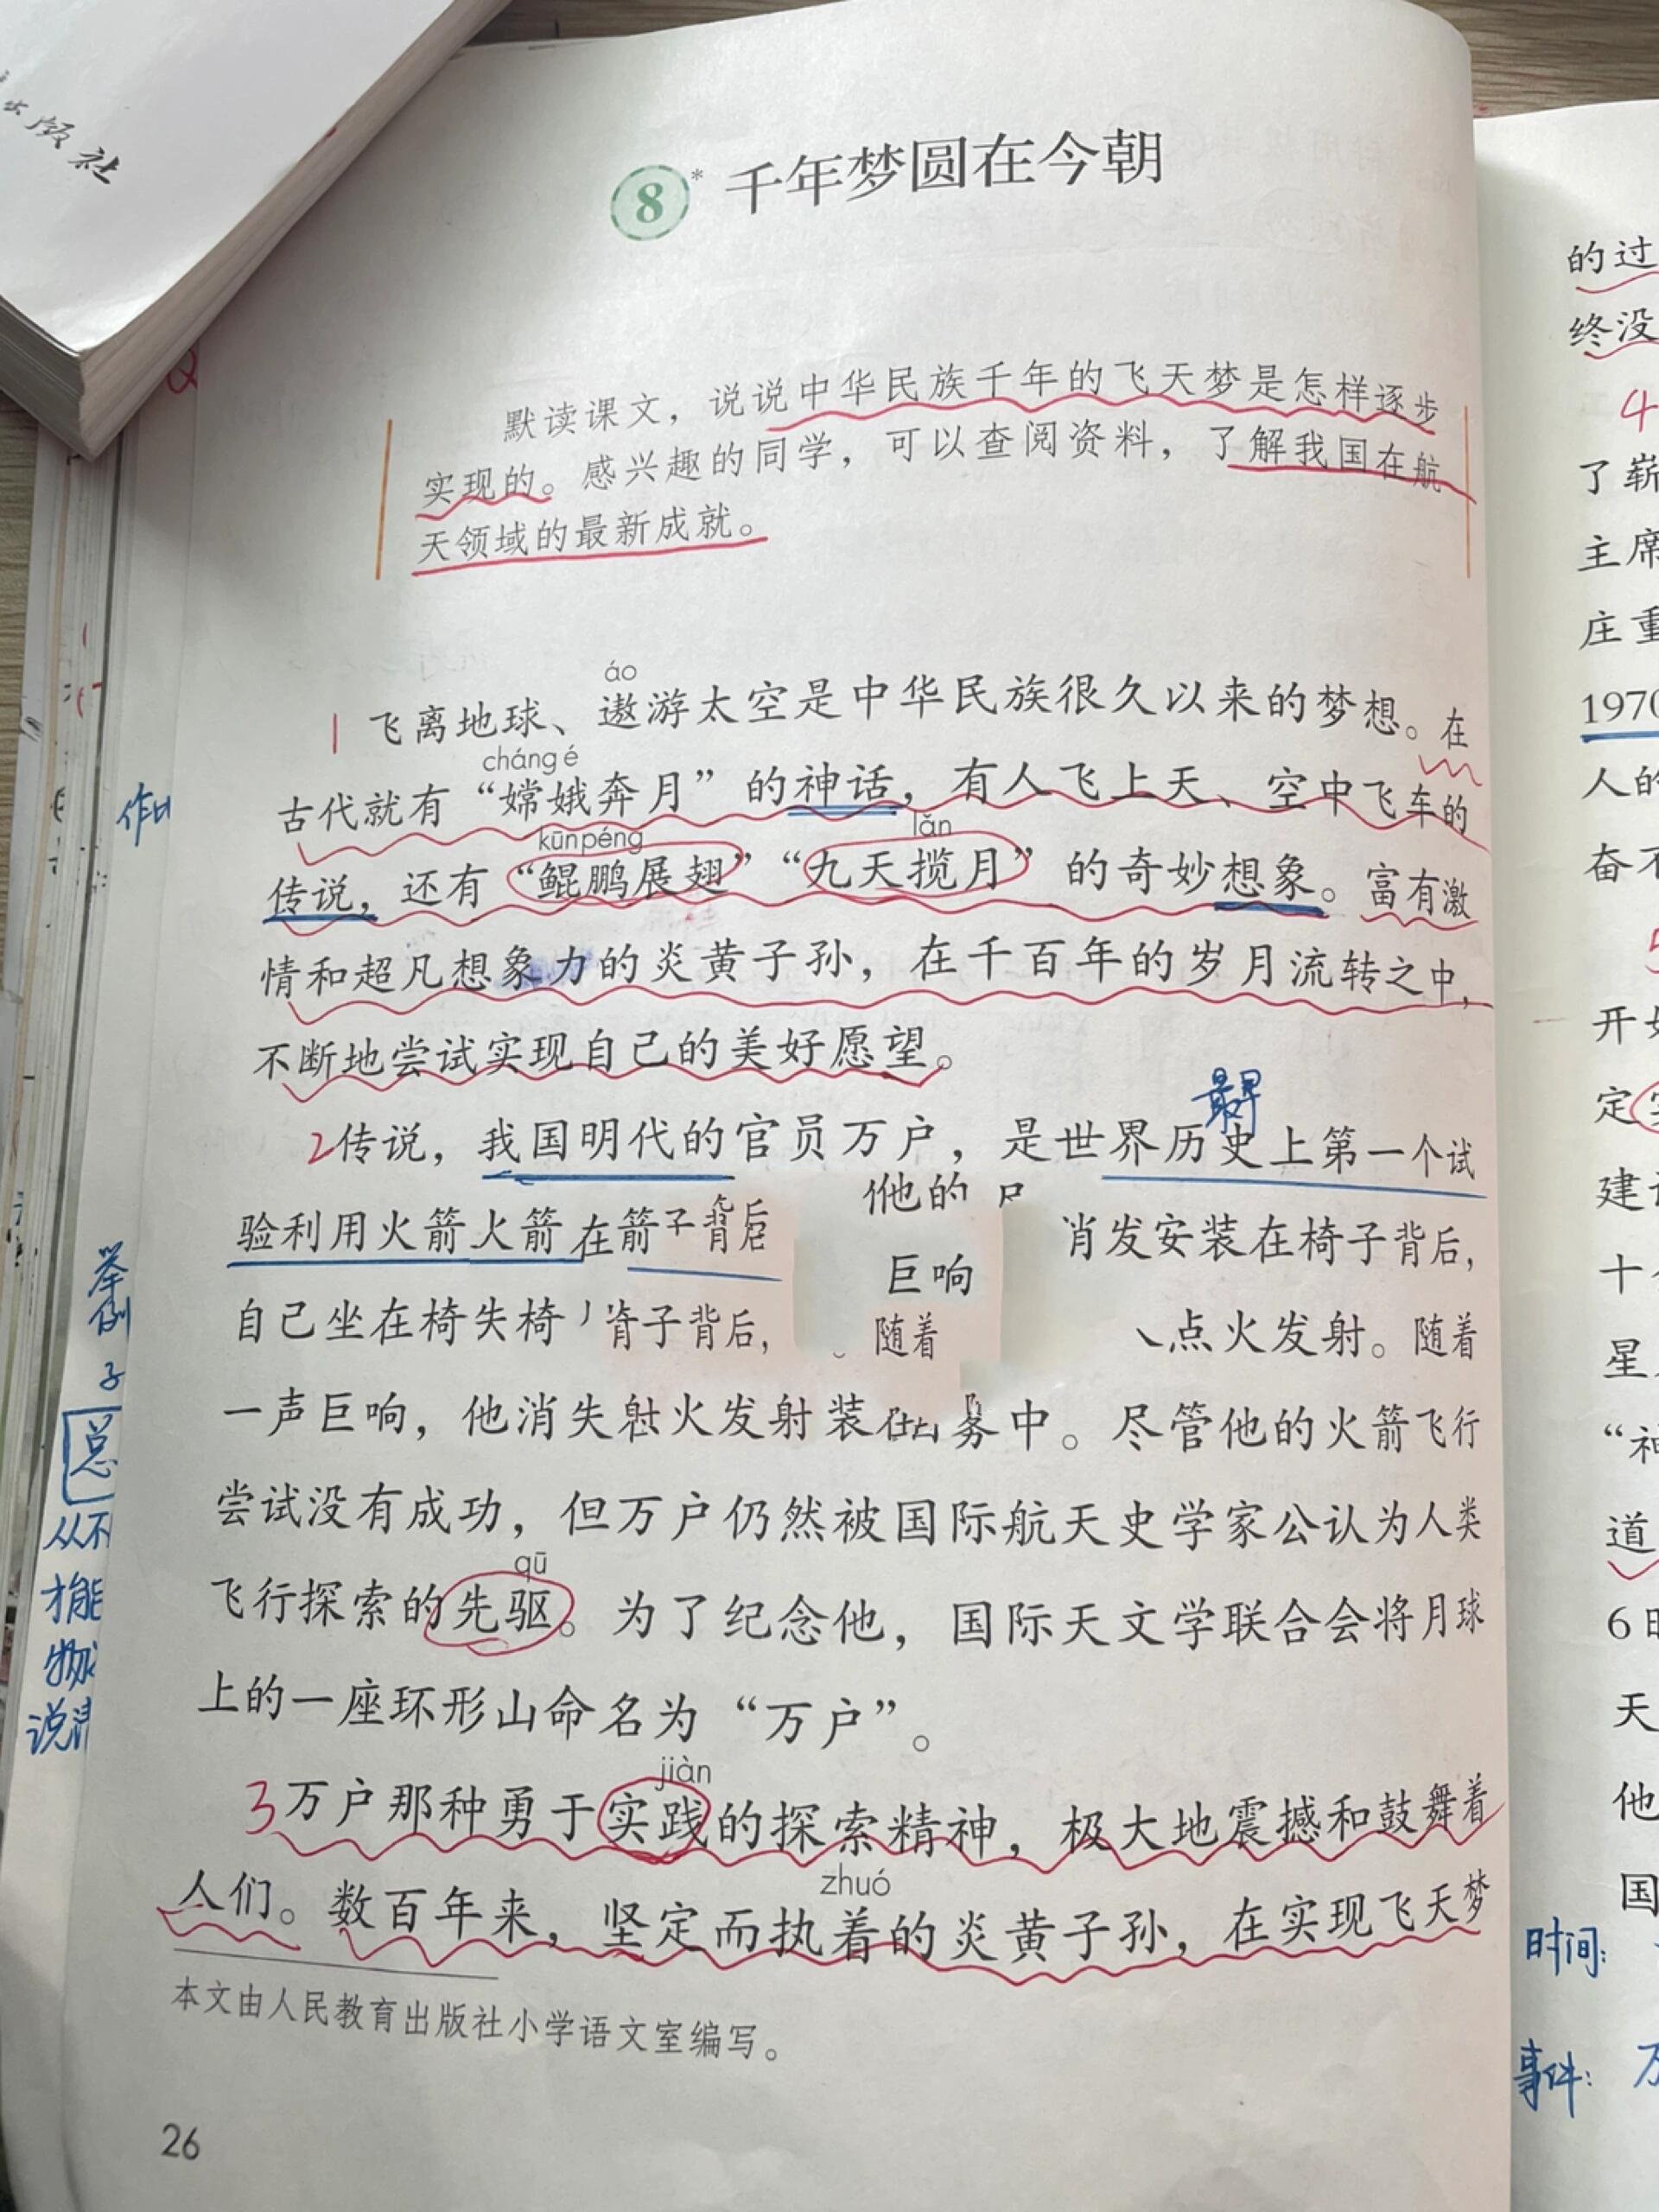 出版社
8* 千年梦圆在今朝
默读课文，说说中华民族千年的飞天梦是怎样逐步
实现的。感兴趣的同学，可以查阅资料，了解我国在航
天领域的最新成就。
áo
1 飞离地球、遨游太空是中华民族很久以来的梦想。在
cháng é
古代就有“嫦娥奔月”的神话，有人飞上天、空中飞车的
kūn péng lǎn
传说，还有“鲲鹏展翅”“九天揽月”的奇妙想象。富有激
情和超凡想象力的炎黄子孙，在千百年的岁月流转之中，
不断地尝试实现自己的美好愿望。
最早
2 传说，我国明代的官员万户，是世界历史上第一个试
他的
验利用火箭火箭在箭子背后 肖发安装在椅子背后，
巨响
自己坐在椅失椅 背子背后， 随着 点火发射。随着
一声巨响，他消失 火发射装在 雾中。尽管他的火箭飞行
尝试没有成功，但万户仍然被国际航天史学家公认为人类
qū
飞行探索的先驱。为了纪念他，国际天文学联合会将月球
上的一座环形山命名为“万户”。
jiàn
3 万户那种勇于实践的探索精神，极大地震撼和鼓舞着
zhuó
人们。数百年来，坚定而执着的炎黄子孙，在实现飞天梦
本文由人民教育出版社小学语文室编写。
26
作
举例
子
总
从不
才能
物
说清
的过
终没
4
了崭
主席
庄重
1970
人的
奋不
5
开始
定
建设
十个
星
“神
道
6时
天
他
国
时间：
事件：万